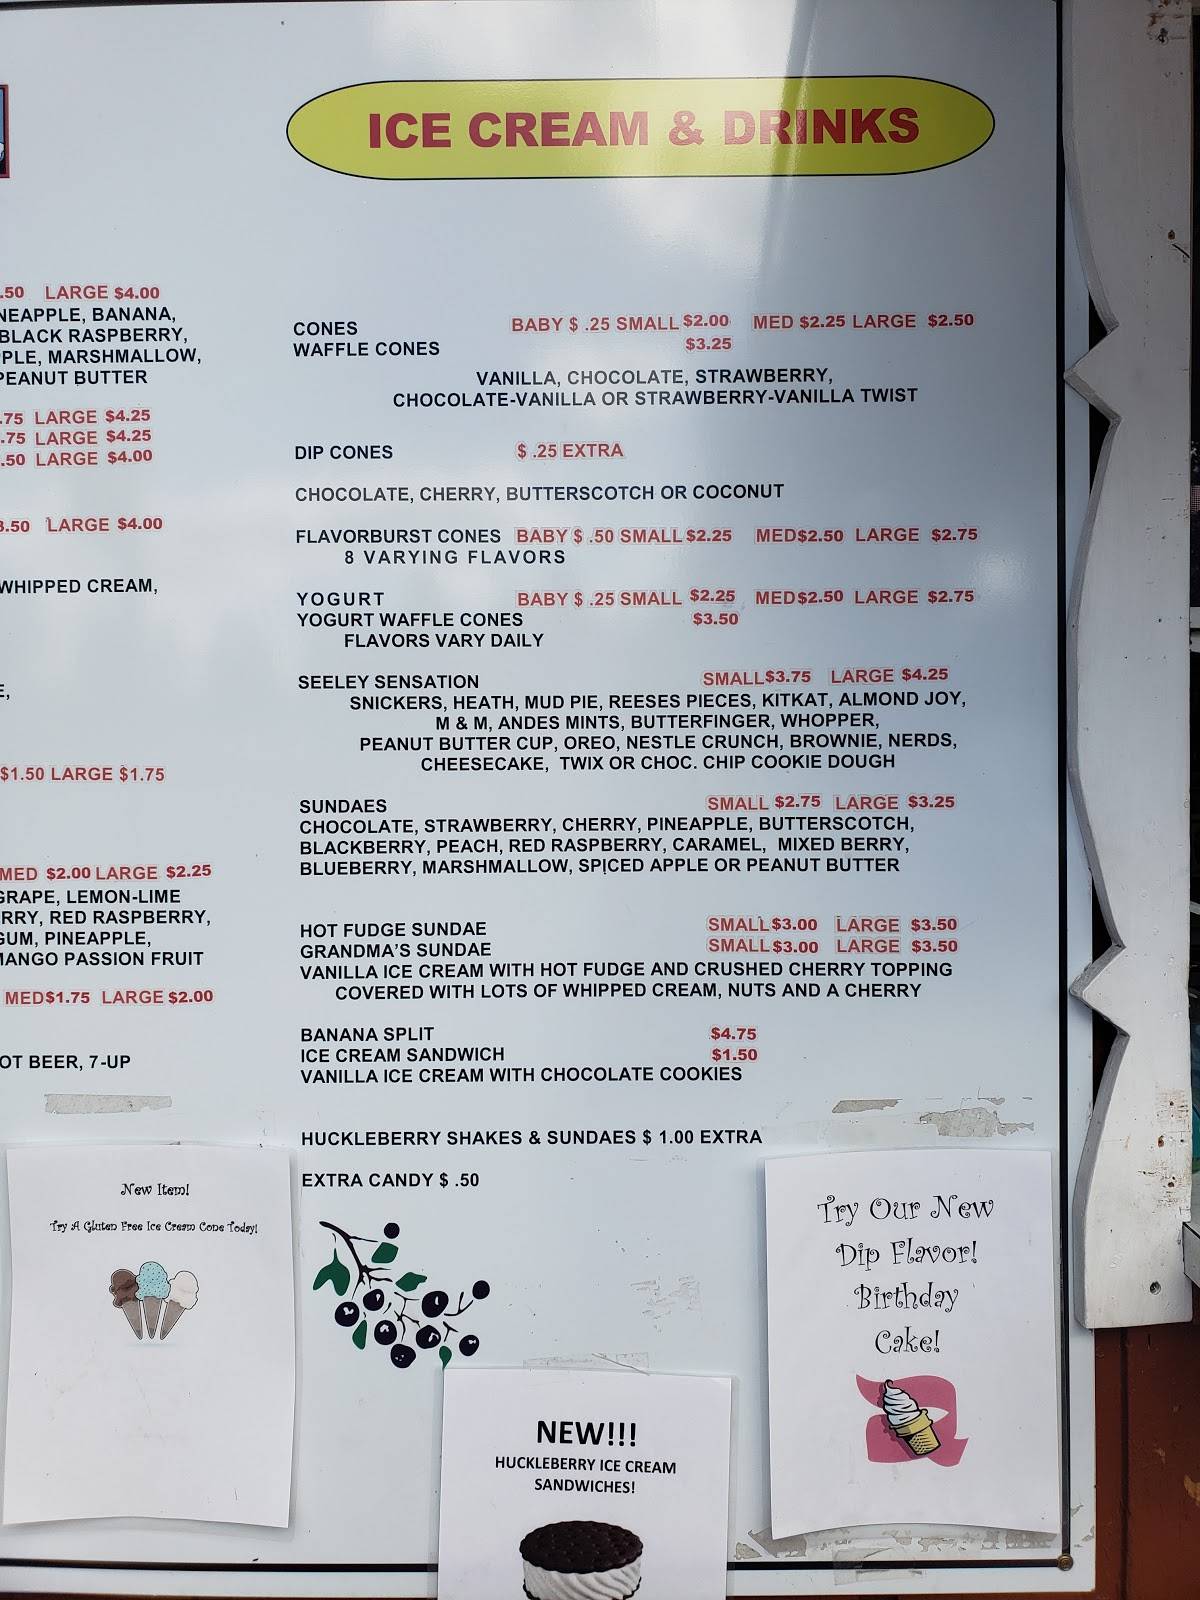 ICE CREAM & DRINKS
.50 LARGE $4.00
NEAPPLE, BANANA,
BLACK RASPBERRY,
PLE, MARSHMALLOW,
PEANUT BUTTER
.75 LARGE $4.25
.75 LARGE $4.25
.50 LARGE $4.00
3.50 LARGE $4.00
WHIPPED CREAM,
E,
$1.50 LARGE $1.75
MED $2.00 LARGE $2.25
GRAPE, LEMON-LIME
RRY, RED RASPBERRY,
GUM, PINEAPPLE,
MANGO PASSION FRUIT
MED$1.75 LARGE $2.00
OT BEER, 7-UP
CONES BABY $ .25 SMALL $2.00 MED $2.25 LARGE $2.50
WAFFLE CONES $3.25
VANILLA, CHOCOLATE, STRAWBERRY,
CHOCOLATE-VANILLA OR STRAWBERRY-VANILLA TWIST
DIP CONES $ .25 EXTRA
CHOCOLATE, CHERRY, BUTTERSCOTCH OR COCONUT
FLAVORBURST CONES BABY $ .50 SMALL $2.25 MED $2.50 LARGE $2.75
8 VARYING FLAVORS
YOGURT BABY $ .25 SMALL $2.25 MED $2.50 LARGE $2.75
YOGURT WAFFLE CONES $3.50
FLAVORS VARY DAILY
SEELEY SENSATION SMALL $3.75 LARGE $4.25
SNICKERS, HEATH, MUD PIE, REESES PIECES, KITKAT, ALMOND JOY,
M & M, ANDES MINTS, BUTTERFINGER, WHOPPER,
PEANUT BUTTER CUP, OREO, NESTLE CRUNCH, BROWNIE, NERDS,
CHEESECAKE, TWIX OR CHOC. CHIP COOKIE DOUGH
SUNDAES SMALL $2.75 LARGE $3.25
CHOCOLATE, STRAWBERRY, CHERRY, PINEAPPLE, BUTTERSCOTCH,
BLACKBERRY, PEACH, RED RASPBERRY, CARAMEL, MIXED BERRY,
BLUEBERRY, MARSHMALLOW, SPICED APPLE OR PEANUT BUTTER
HOT FUDGE SUNDAE SMALL $3.00 LARGE $3.50
GRANDMA'S SUNDAE SMALL $3.00 LARGE $3.50
VANILLA ICE CREAM WITH HOT FUDGE AND CRUSHED CHERRY TOPPING
COVERED WITH LOTS OF WHIPPED CREAM, NUTS AND A CHERRY
BANANA SPLIT $4.75
ICE CREAM SANDWICH $1.50
VANILLA ICE CREAM WITH CHOCOLATE COOKIES
HUCKLEBERRY SHAKES & SUNDAES $ 1.00 EXTRA
EXTRA CANDY $ .50
New Item!
Try A Gluten Free Ice Cream Cone Today!
NEW!!!
HUCKLEBERRY ICE CREAM
SANDWICHES!
Try Our New
Dip Flavor!
Birthday
Cake!